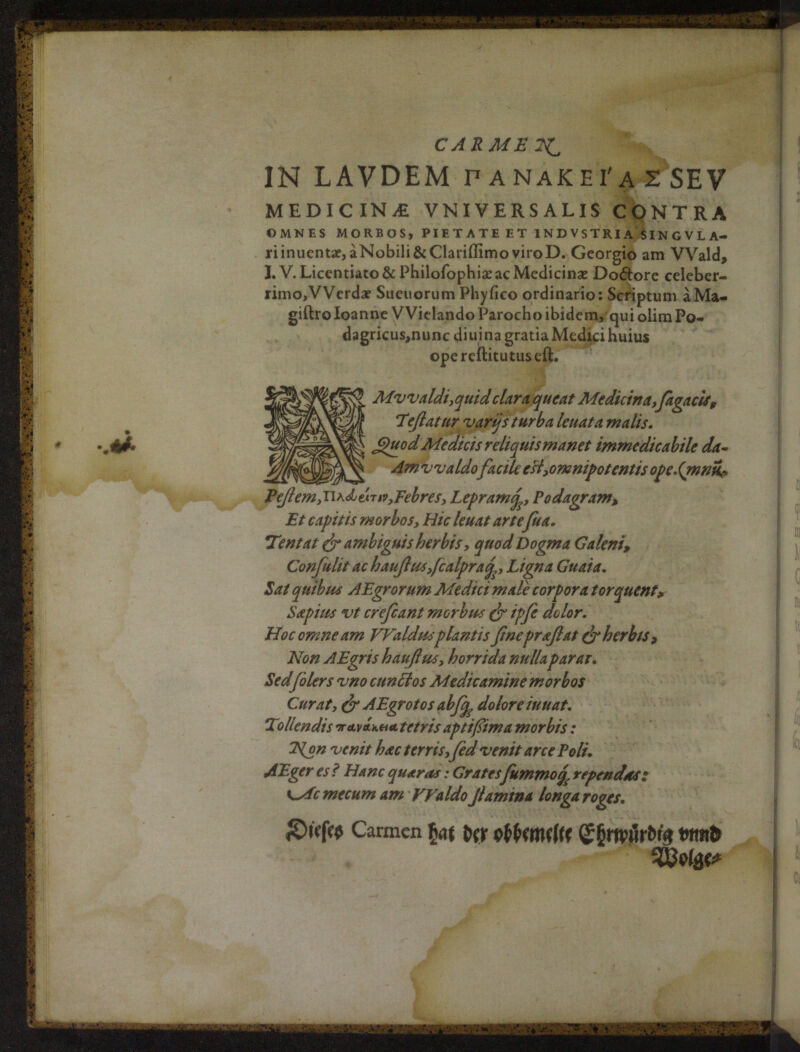 CARMEN
IN LAVDEM ΠΑΝΑΚΕΙ'ΑΣ SEV
MEDICINÆ VNIVERSALIS CONTRA
OMNES MORBOS, PIETATE ET INDVSTRIA SINGVLA-
ri inuentæ, à Nobili & Clariſſimo viro D. Georgio am VVald,
I. V. Licentiato & Philoſophiæ ac Medicinæ Doctore celeber-
rimo, VVerdæ Sueuorum Phyſico ordinario: Scriptum à Ma-
giſtro Ioanne VVielando Parocho ibidem, qui olim Po-
dagricus, nunc diuina gratia Medici huius
ope reſtitutus eſt.
AMvvaldi, quid clara queat Medicina, ſagacis,
Teſtatur varijs turba leuata malis.
Quod Medicis reliquis manet immedicabile da-
Amvvaldo facile eſt, omnipotentis ope. (mnũ,
Peſtem, Febres, Lepramq́, Podagram,
Et capitis morbos, Hic leuat arte ſua.
Tentat & ambiguis herbis, quod Dogma Galeni,
Conſulit ac hauſtus, ſcalpraq́, Ligna Guaia.
Sat quibus AEgrorum Medici malè corpora torquent,
Sæpius vt creſcant morbus & ipſe dolor.
Hoc omne am VValdus plantis ſine præſtat & herbis,
Non AEgris hauſtus, horrida nulla parat.
Sed ſolers vno cunctos Medicamine morbos
Curat, & AEgrotos abſq́, dolore iuuat.
Tollendis πανάκεια tetris aptißima morbis:
Non venit hæc terris, ſed venit arce Poli.
AEger es? Hanc quæras: Grates ſummoq́, rependas:
Ac mecum am VValdo ſtamina longa roges.
Dieſes Carmen hat der obbemelte Ehrwürdig vnnd
Wolge-